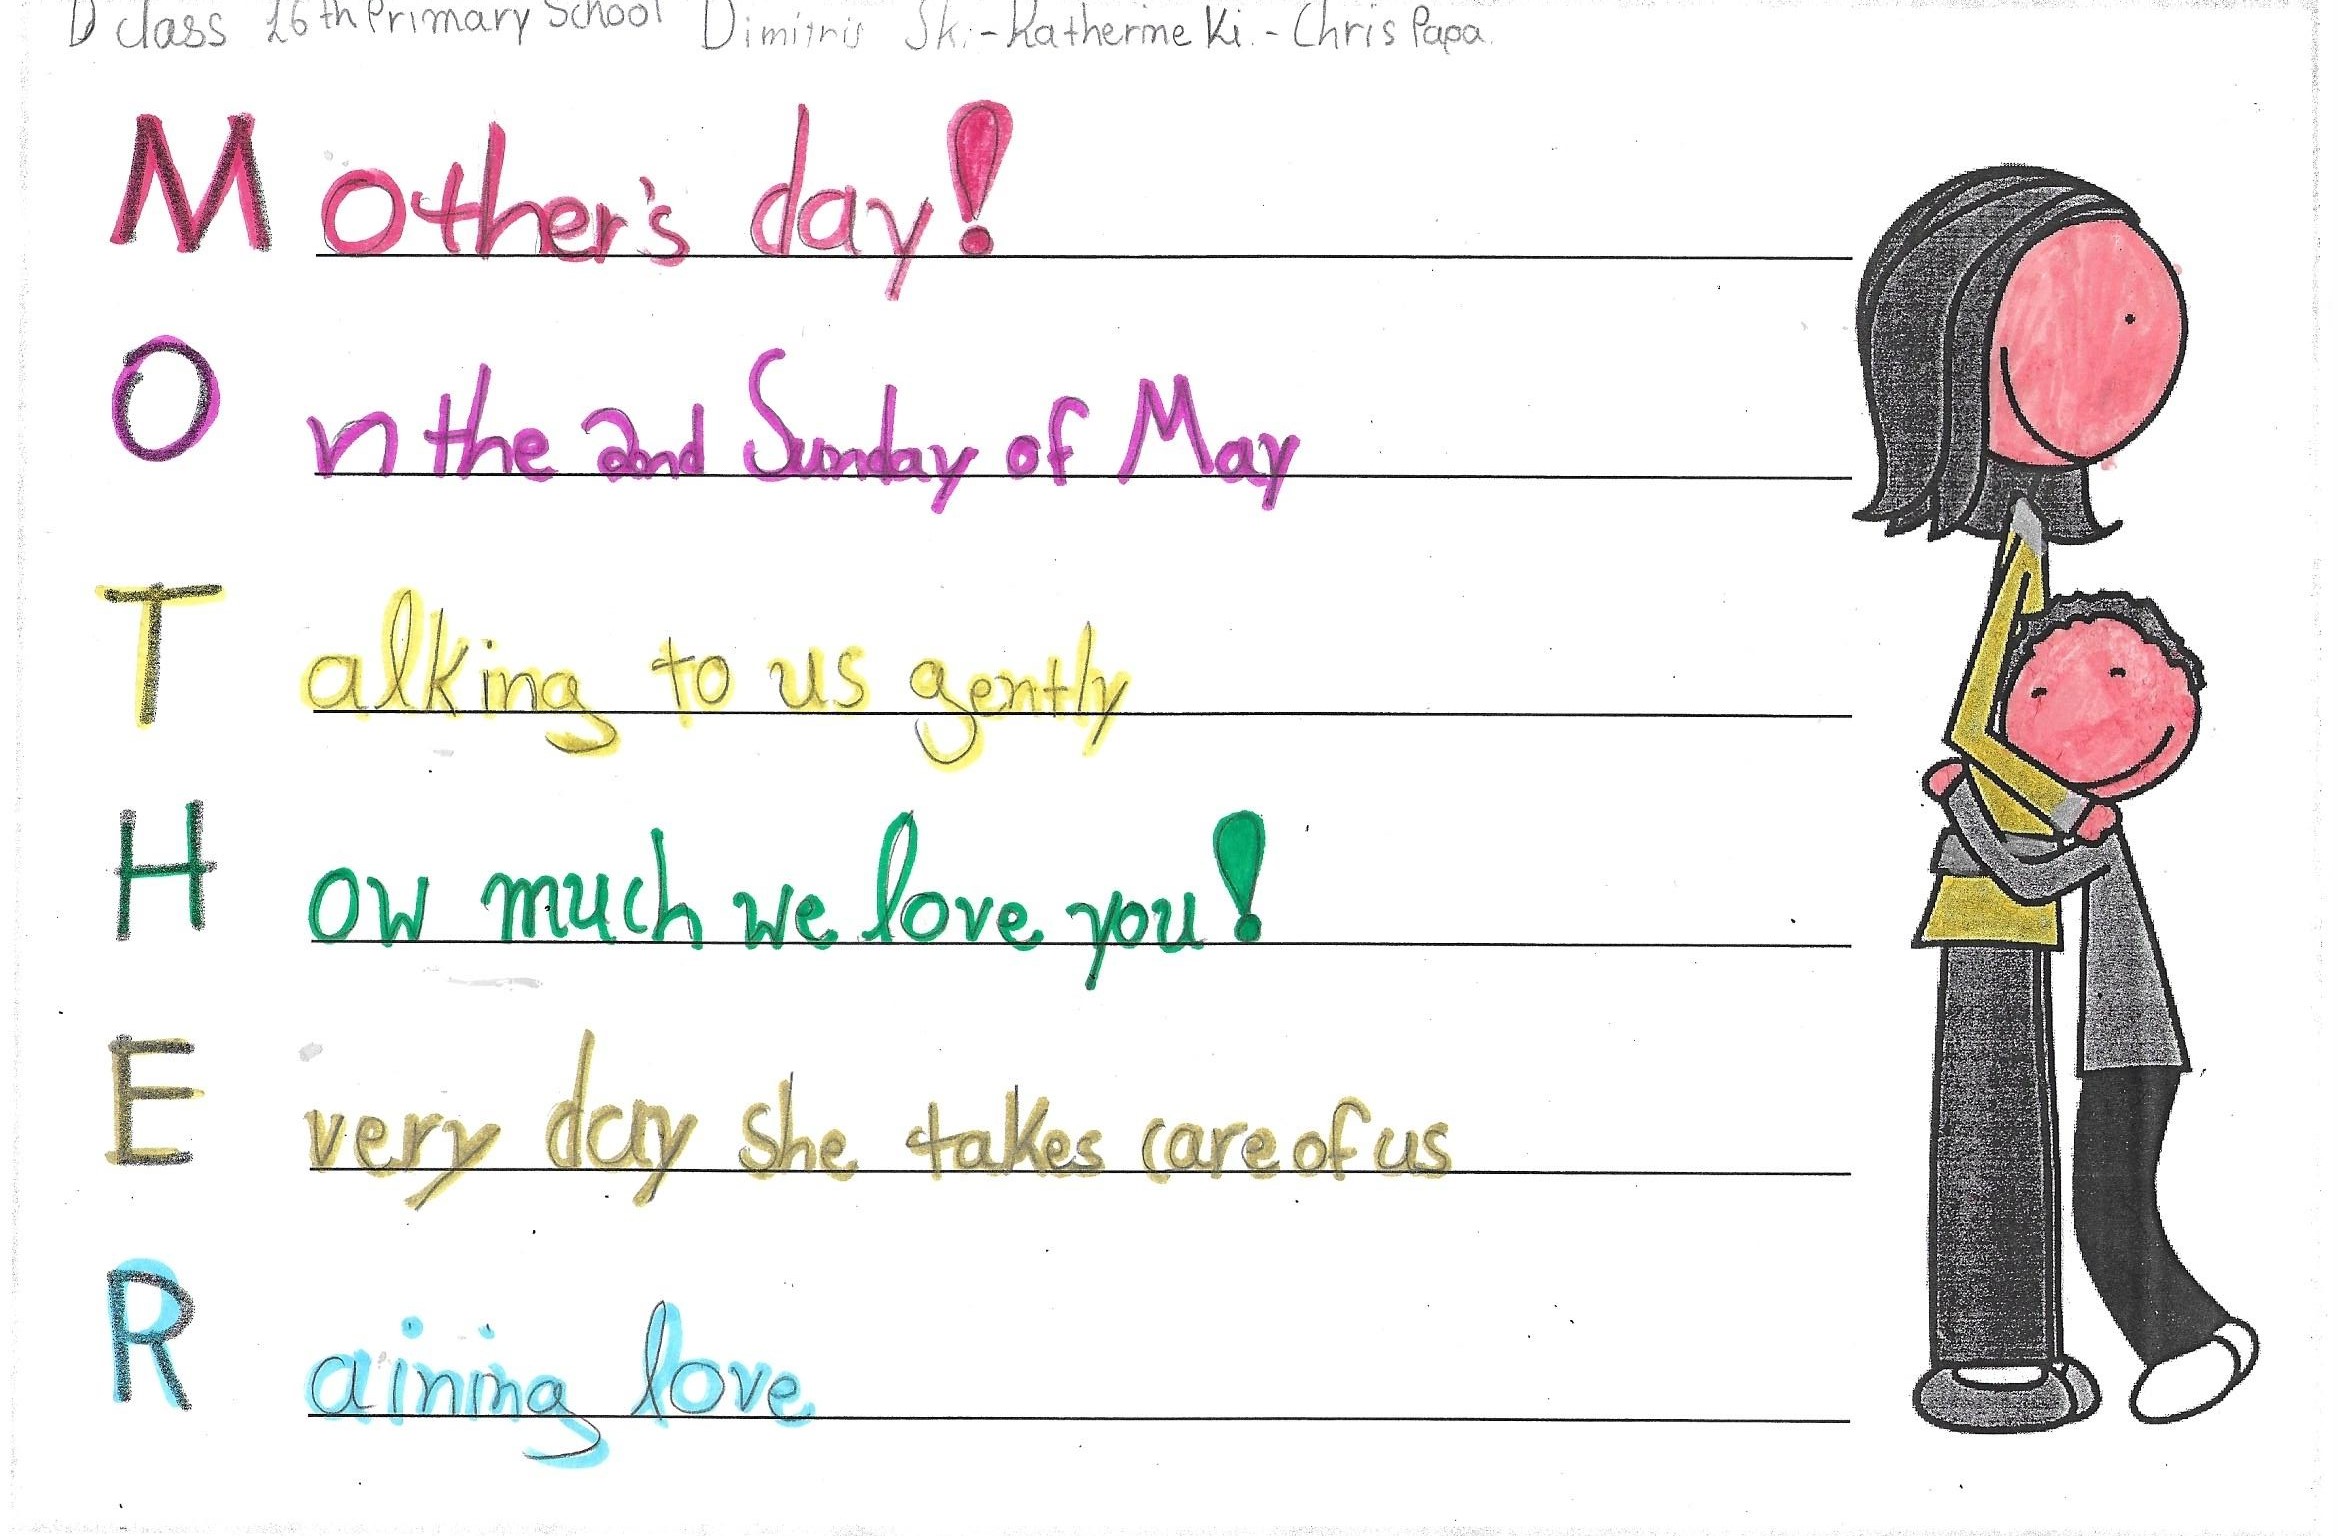 D class 16th Primary School Dimitris Sk. - Katherine Ki. - Chris Papa.
Mother's day!
On the 2nd Sunday of May
Talking to us gently
How much we love you!
Every day she takes care of us
Raining love